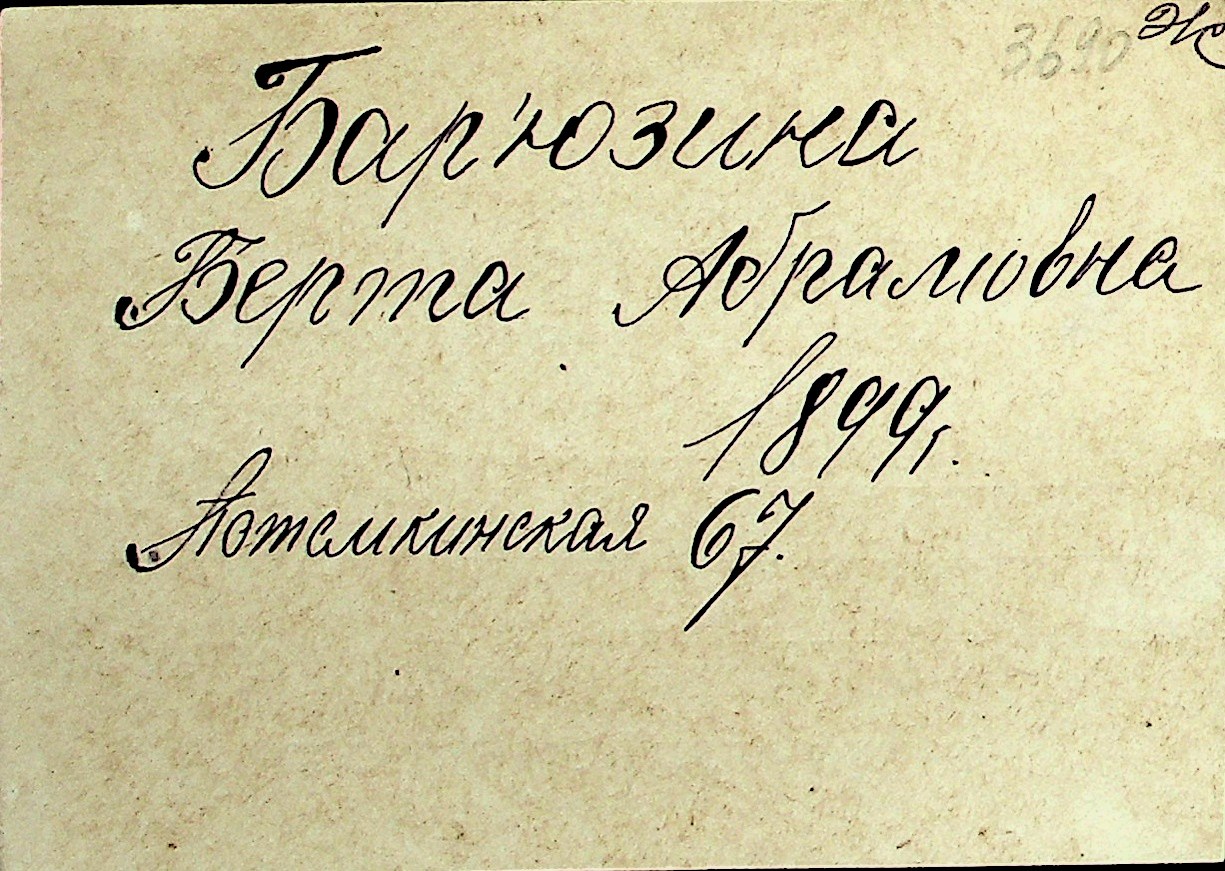 3690
Бар'юзина
Берта Абрамовна
1899г.
Потемкинская 67.